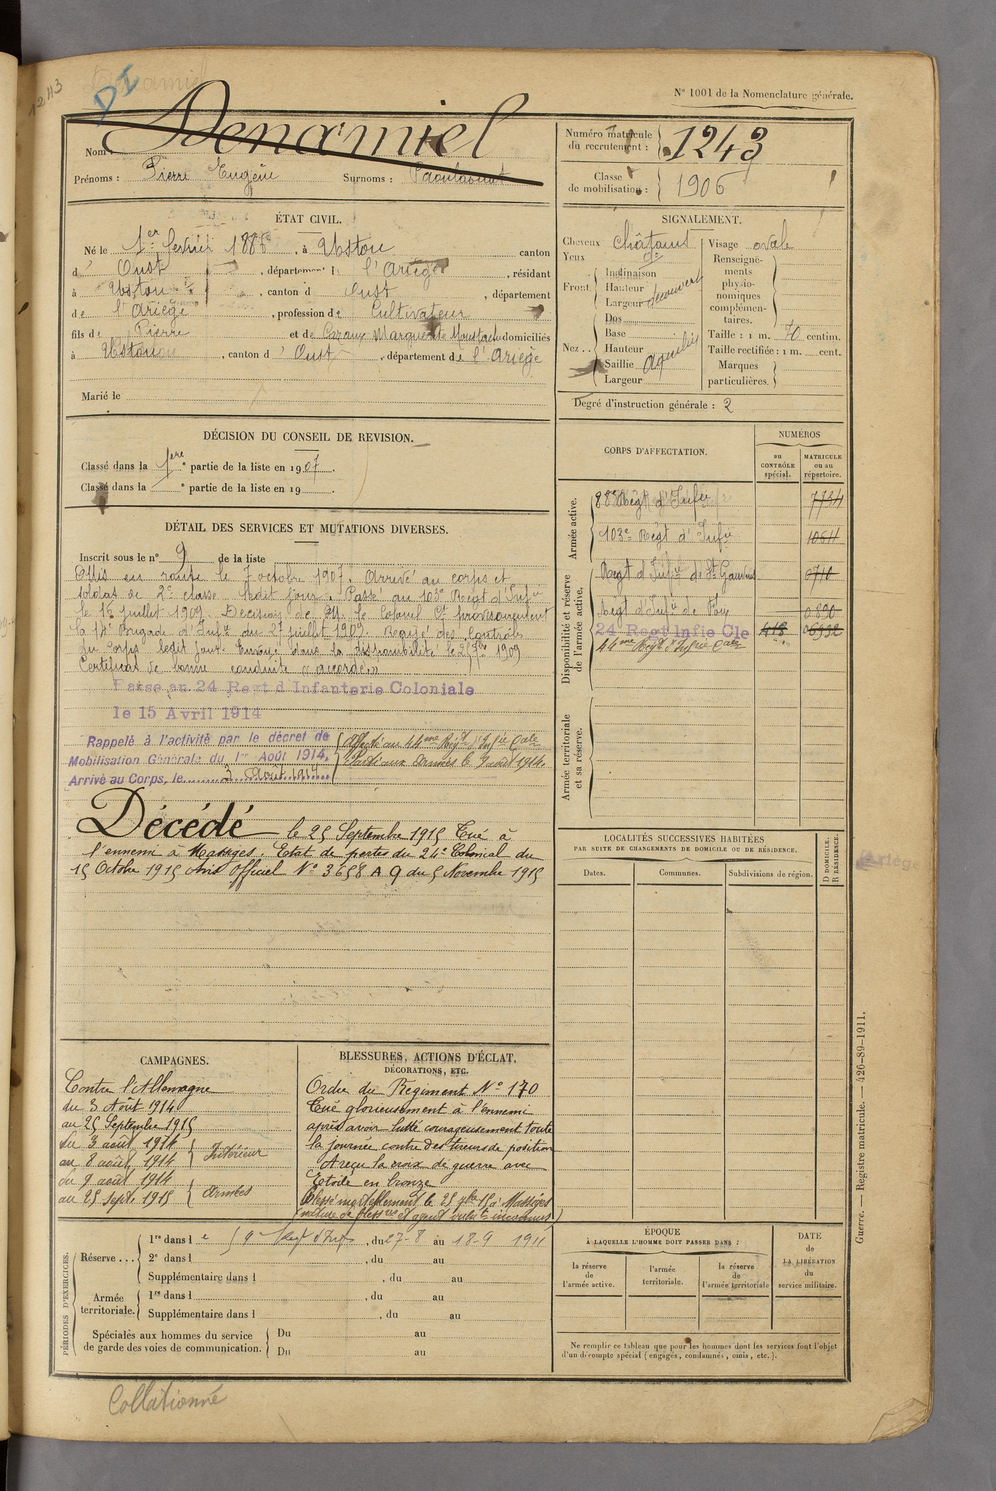 1243
DI
N° 1001 de la Nomenclature générale.
Nom : Denamiel
Prénoms : Pierre Eugène Surnoms :
Numéro matricule
du recrutement : 1243
Classe
de mobilisation : 1906
ÉTAT CIVIL.
Né le 1er février 1886, à Ustou canton
d' Oust, département d l'Ariège, résidant
à Ustou, canton d Oust, département
de l'Ariège, profession de Cultivateur
fils de Pierre et de Cazaux Marguerite domiciliés
à Ustou, canton d' Oust, département de l'Ariège
Marié le
SIGNALEMENT.
Cheveux châtains
Yeux de
Front. Inclinaison
Hauteur
Largeur découvert
Nez .. Dos
Base
Hauteur
Saillie aquilin
Largeur
Visage ovale
Renseigne-
ments
physio-
nomiques
complémen-
taires.
Taille : 1 m. 70 centim.
Taille rectifiée : 1 m. cent.
Marques
particulières.
Degré d'instruction générale : 2
DÉCISION DU CONSEIL DE REVISION.
Classé dans la 1ere partie de la liste en 1907.
Classé dans la e partie de la liste en 19 .
DÉTAIL DES SERVICES ET MUTATIONS DIVERSES.
Inscrit sous le n° 9 de la liste
Mis en route le 7 octobre 1907. Arrivé au corps et
soldat de 2e classe ledit jour. Passé au 103e Régt d'Infie
le 15 juillet 1909. Décision de M. le Colonel Ct provisoirement
la 14e Brigade d'Infie du 2 juillet 1909. Rayé des contrôles
du corps ledit jour. Envoyé dans la disponibilité le 1909
Certificat de bonne conduite "accordé"
Passé au 24 Regt d Infanterie Coloniale
le 15 Avril 1914
Rappelé à l'activité par le décret de
Mobilisation Générale du 1er Août 1914,
Arrivé au Corps, le 3 Août 1914
Affecté au 44me Régt d'Infie Cale
Parti aux Armées le 9 août 1914.
Décédé le 25 Septembre 1915 Tué à
l'ennemi à Massiges. Etat de pertes du 24e Colonial du
15 Octobre 1915 avis officiel N° 3658 A 9 du 5 Novembre 1915
CORPS D'AFFECTATION.
NUMÉROS
au
CONTRÔLE
spécial.
MATRICULE
ou au
répertoire.
Armée active.
88e Régt d'Infie 7724
103e Régt d'Infie 10611
Disponibilité et réserve
de l'armée active.
Régt d'Infie de St Gaudens 0710
Régt d'Infie de Foix 0890
24 Regt Infie Cle 418 06932
44me Régt d'Infie Cale
Armée territoriale
et sa réserve.
LOCALITÉS SUCCESSIVES HABITÉES
PAR SUITE DE CHANGEMENTS DE DOMICILE OU DE RÉSIDENCE.
Dates.
Communes.
Subdivisions de région.
D DOMICILE.
R RÉSIDENCE.
Ariège
CAMPAGNES.
Contre l'Allemagne
du 3 Août 1914
au 25 Septembre 1915
du 3 août 1914
au 8 août 1914 Intérieur
du 9 août 1914
au 25 septe 1915 Armées
BLESSURES, ACTIONS D'ÉCLAT,
DÉCORATIONS, ETC.
Ordre du Régiment N° 170
Tué glorieusement à l'ennemi
après avoir lutté courageusement toute
la journée contre des tireurs de position
A reçu la croix de guerre avec
Etoile en bronze
Blessé mortellement le 25 7bre 15 à Massiges
(nature de blessres et agent vulnt inconnus)
PÉRIODES D'EXERCICES.
Réserve ... 1re dans l e 59e Régt d'Infie, du 27-8 au 18-9 1911
2e dans l , du au
Supplémentaire dans l , du au
Armée
territoriale. 1re dans l , du au
Supplémentaire dans l , du au
Spéciales aux hommes du service
de garde des voies de communication. Du au
Du au
ÉPOQUE
À LAQUELLE L'HOMME DOIT PASSER DANS :
la réserve
de
l'armée active.
l'armée
territoriale.
la réserve
de
l'armée territoriale
DATE
de
LA LIBÉRATION
du
service militaire.
Ne remplir ce tableau que pour les hommes dont les services font l'objet
d'un décompte spécial (engagés, condamnés, omis, etc.).
Guerre. — Registre matricule. — 426-89-1911.
Collationné